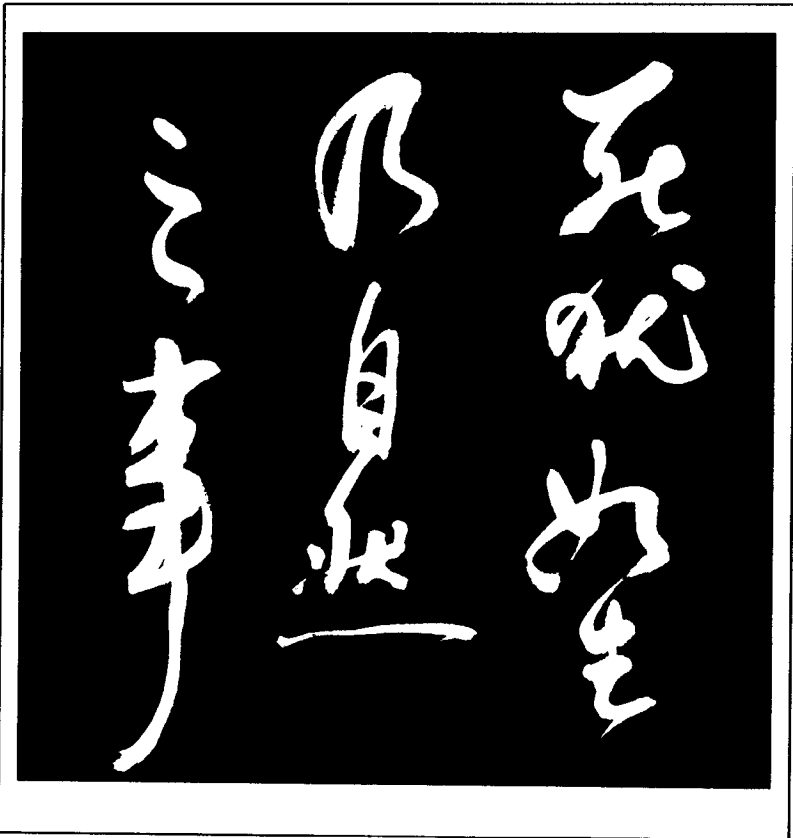 死犹如生
乃自然
之事